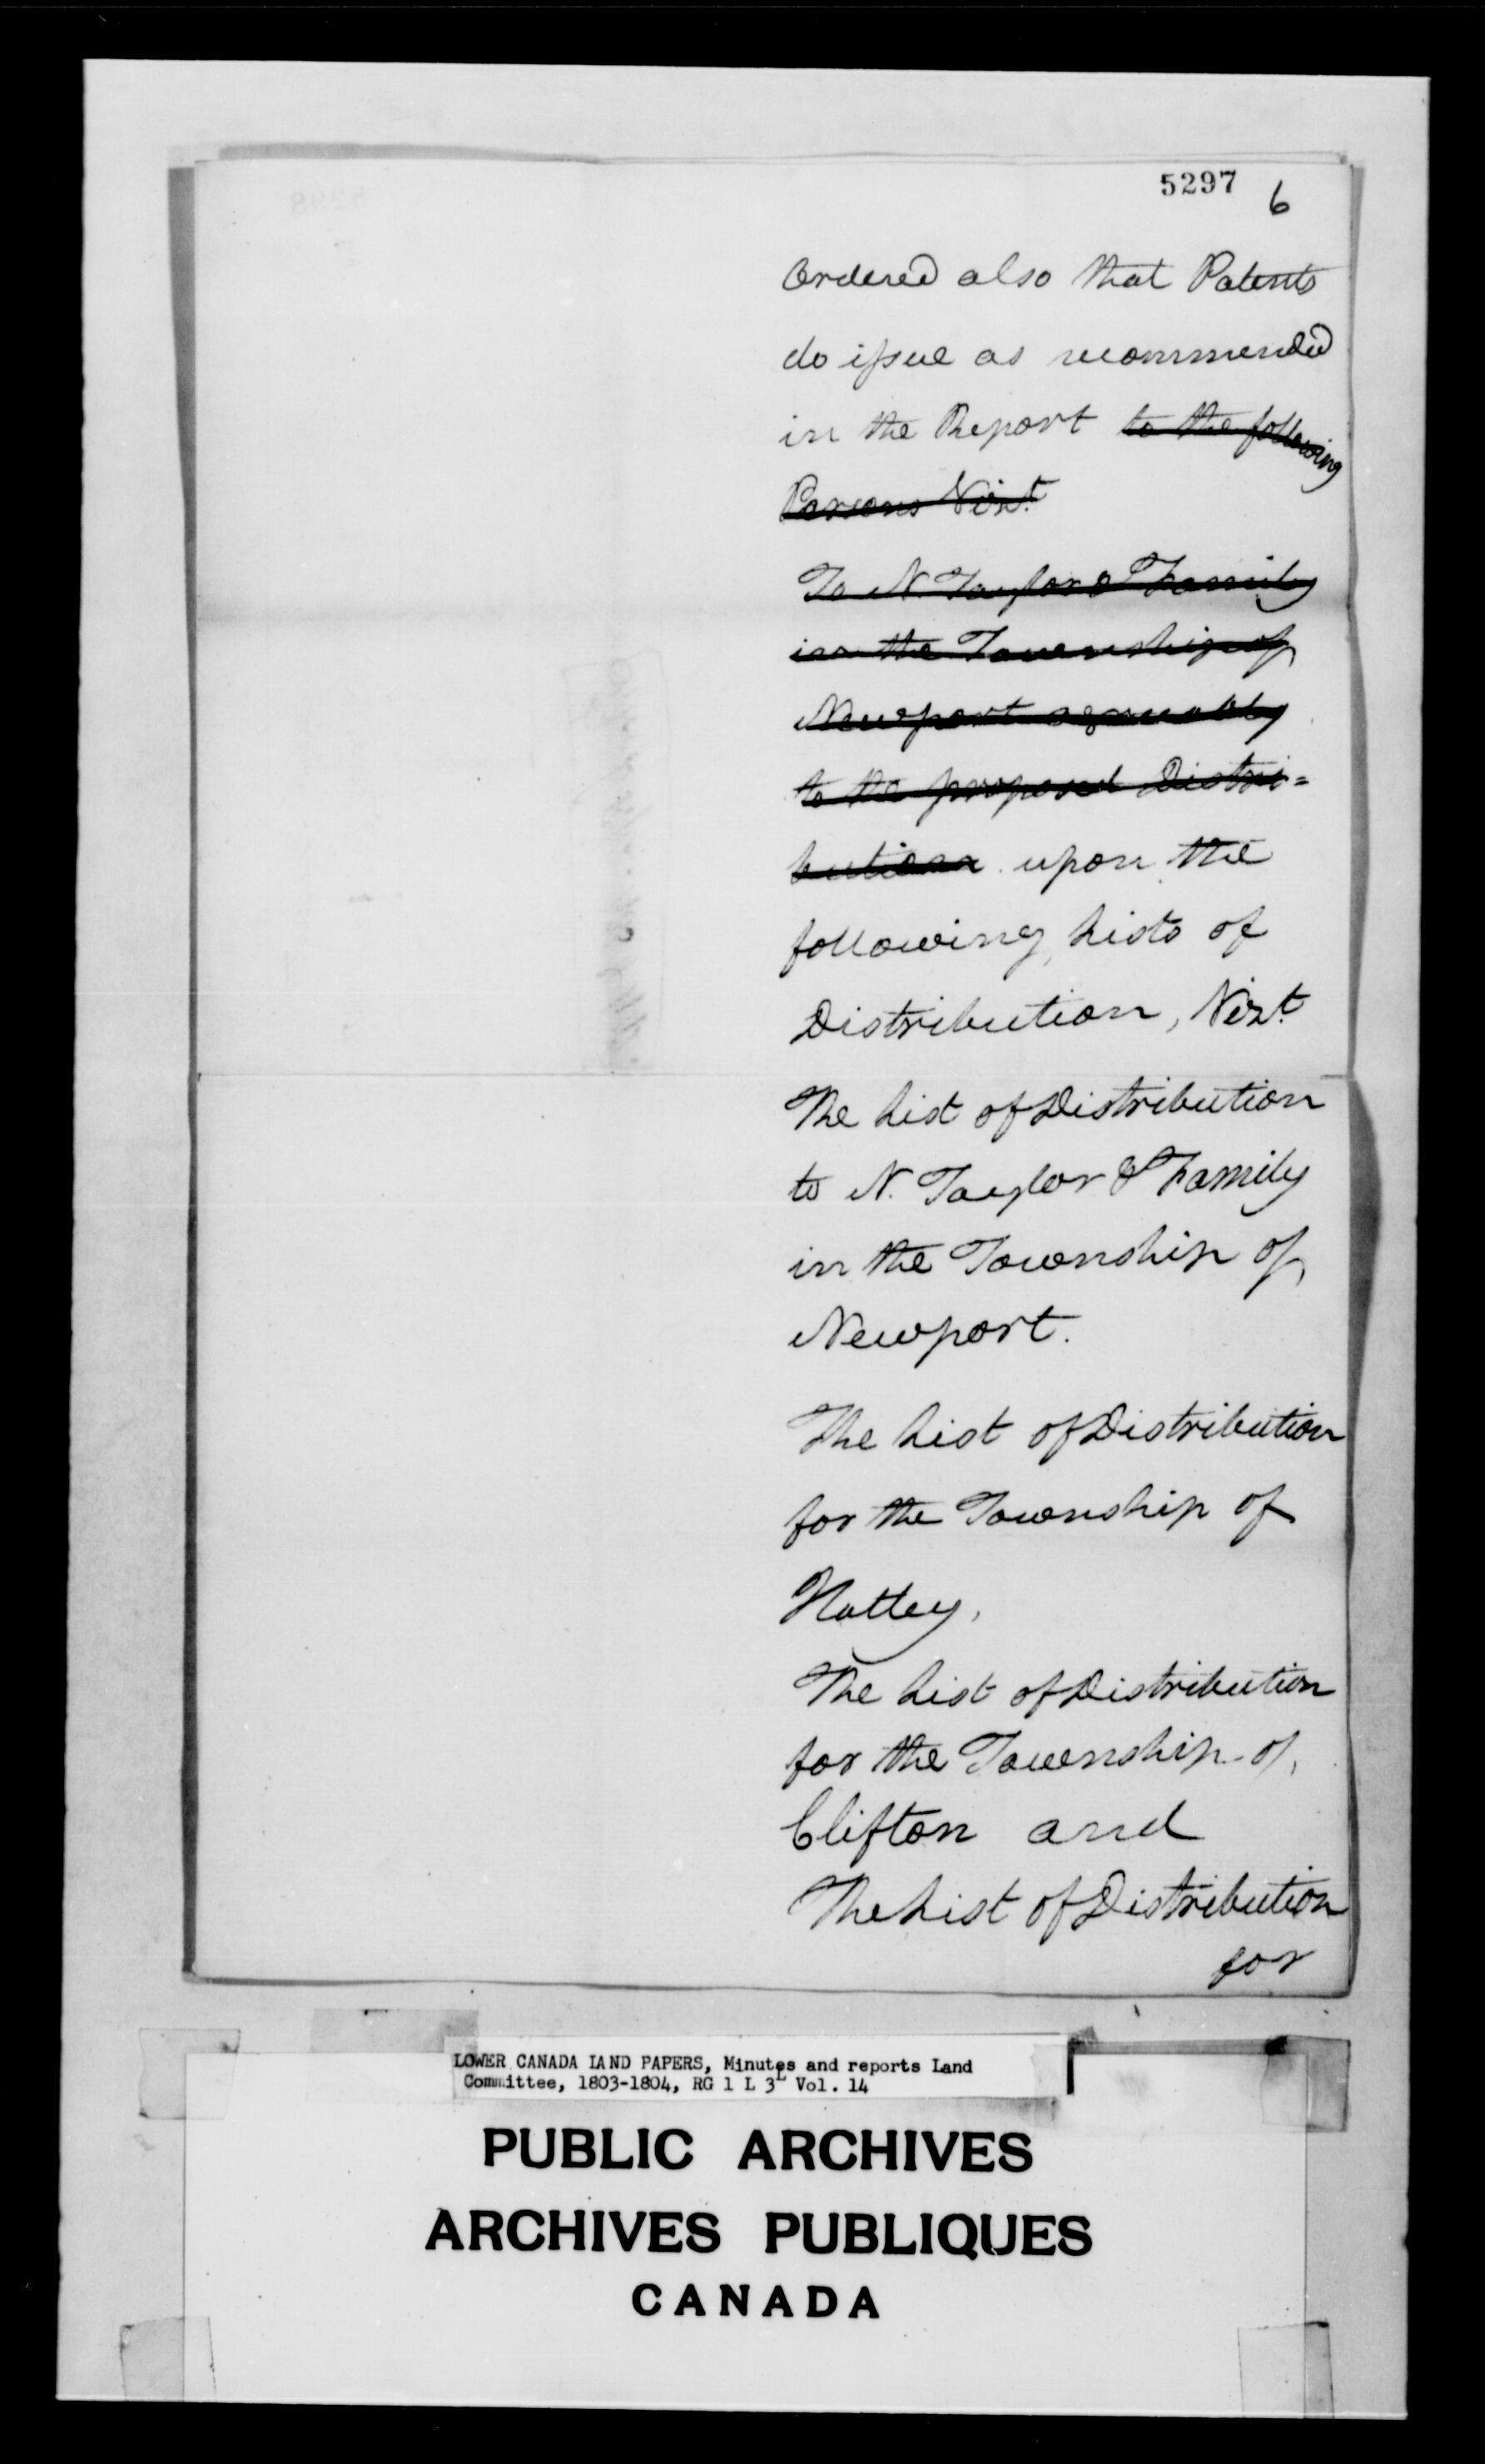 5297
6
Ordered also that Patents
do issue as recommended
in the Report to the following
Persons Vizt.
To N. Taylor & Family
in the Township of
Newport agreeably
to the proposed Distri=
bution upon the
following Lists of
Distribution, Vizt.
The List of Distribution
to N. Taylor & Family
in the Township of
Newport.
The List of Distribution
for the Township of
Hatley,
The List of Distribution
for the Township of,
Clifton and
The List of Distribution
for
LOWER CANADA LAND PAPERS, Minutes and reports Land
Committee, 1803-1804, RG 1 L 3L Vol. 14
PUBLIC ARCHIVES
ARCHIVES PUBLIQUES
CANADA